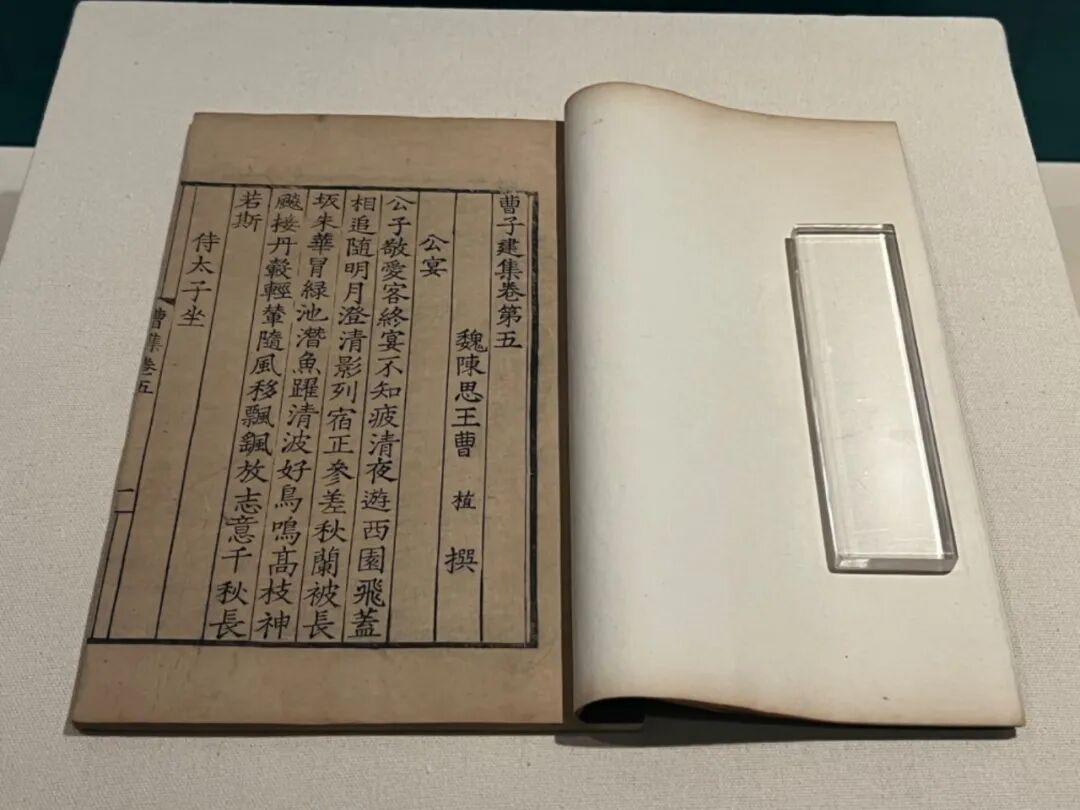 曹子建集卷第五
魏陳思王曹植撰
公宴
公子敬愛客終宴不知疲清夜遊西園飛蓋
相追隨明月澄清影列宿正參差秋蘭被長
坂朱華冒綠池潛魚躍清波好鳥鳴高枝神
飈接丹轂輕輦隨風移飄颻放志意千秋長
若斯
侍太子坐
曹集卷五
一